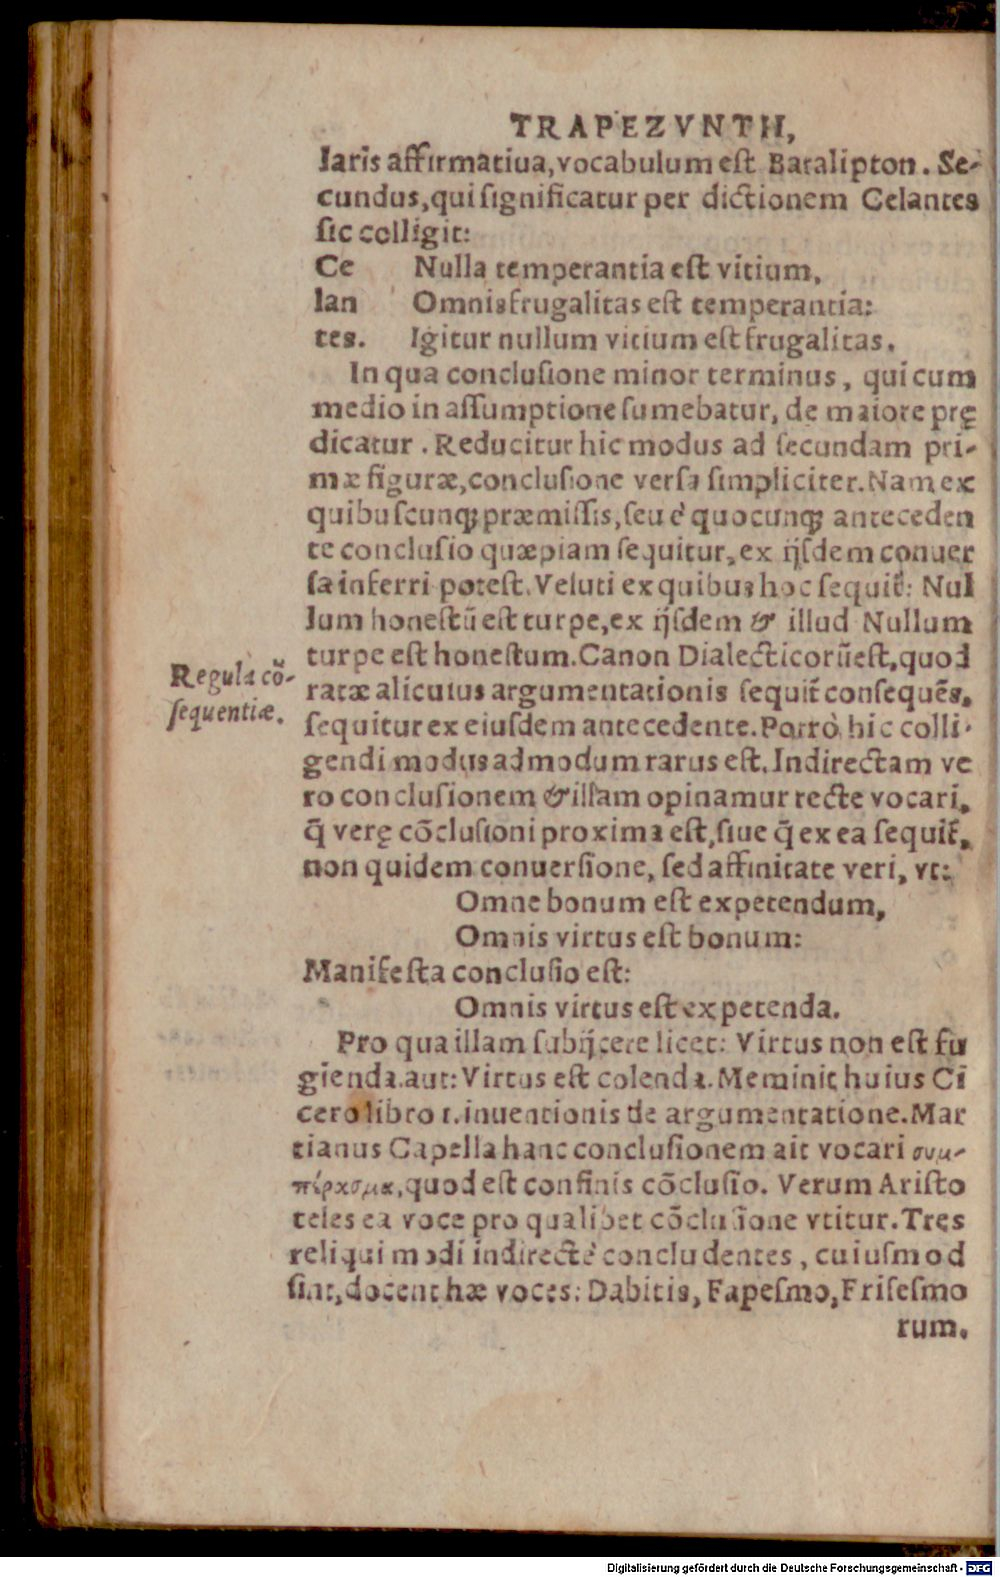 TRAPEZVNTII,
laris affirmatiua, vocabulum est Baralipton. Se-
cundus, qui significatur per dictionem Celantes
sic colligit:
Ce Nulla temperantia est vitium,
lan Omnis frugalitas est temperantia:
tes. Igitur nullum vitium est frugalitas.
In qua conclusione minor terminus, qui cum
medio in assumptione sumebatur, de maiore prę
dicatur. Reducitur hic modus ad secundam pri-
mæ figuræ, conclusione versa simpliciter. Nam ex
quibuscunq; præmissis, seu è quocunq; anteceden
te conclusio quæpiam sequitur, ex ijsdem conuer
sa inferri potest. Veluti ex quibus hoc sequit̃: Nul
lum honestũ est turpe, ex ijsdem & illud Nullum
turpe est honestum. Canon Dialecticorũ est, quod
Regula cõ-
sequentiæ.
ratæ alicuius argumentationis sequit̃ consequẽs,
sequitur ex eiusdem antecedente. Porrò hic colli-
gendi modus admodum rarus est. Indirectam ve
ro conclusionem & illam opinamur recte vocari,
q̃ verę cõclusioni proxima est, siue q̃ ex ea sequit̃,
non quidem conuersione, sed affinitate veri, vt:
Omne bonum est expetendum,
Omnis virtus est bonum:
Manifesta conclusio est:
Omnis virtus est expetenda.
Pro qua illam subijcere licet: Virtus non est fu
gienda. aut: Virtus est colenda. Meminit huius Ci
cero libro 1. inuentionis de argumentatione. Mar
tianus Capella hanc conclusionem ait vocari συμ-
πέρασμα, quod est confinis cõclusio. Verum Aristo
teles ea voce pro qualibet cõclusione vtitur. Tres
reliqui modi indirectè concludentes, cuiusmod
sint, docent hæ voces: Dabitis, Fapesmo, Frisesmo
rum.
Digitalisierung gefördert durch die Deutsche Forschungsgemeinschaft - DFG